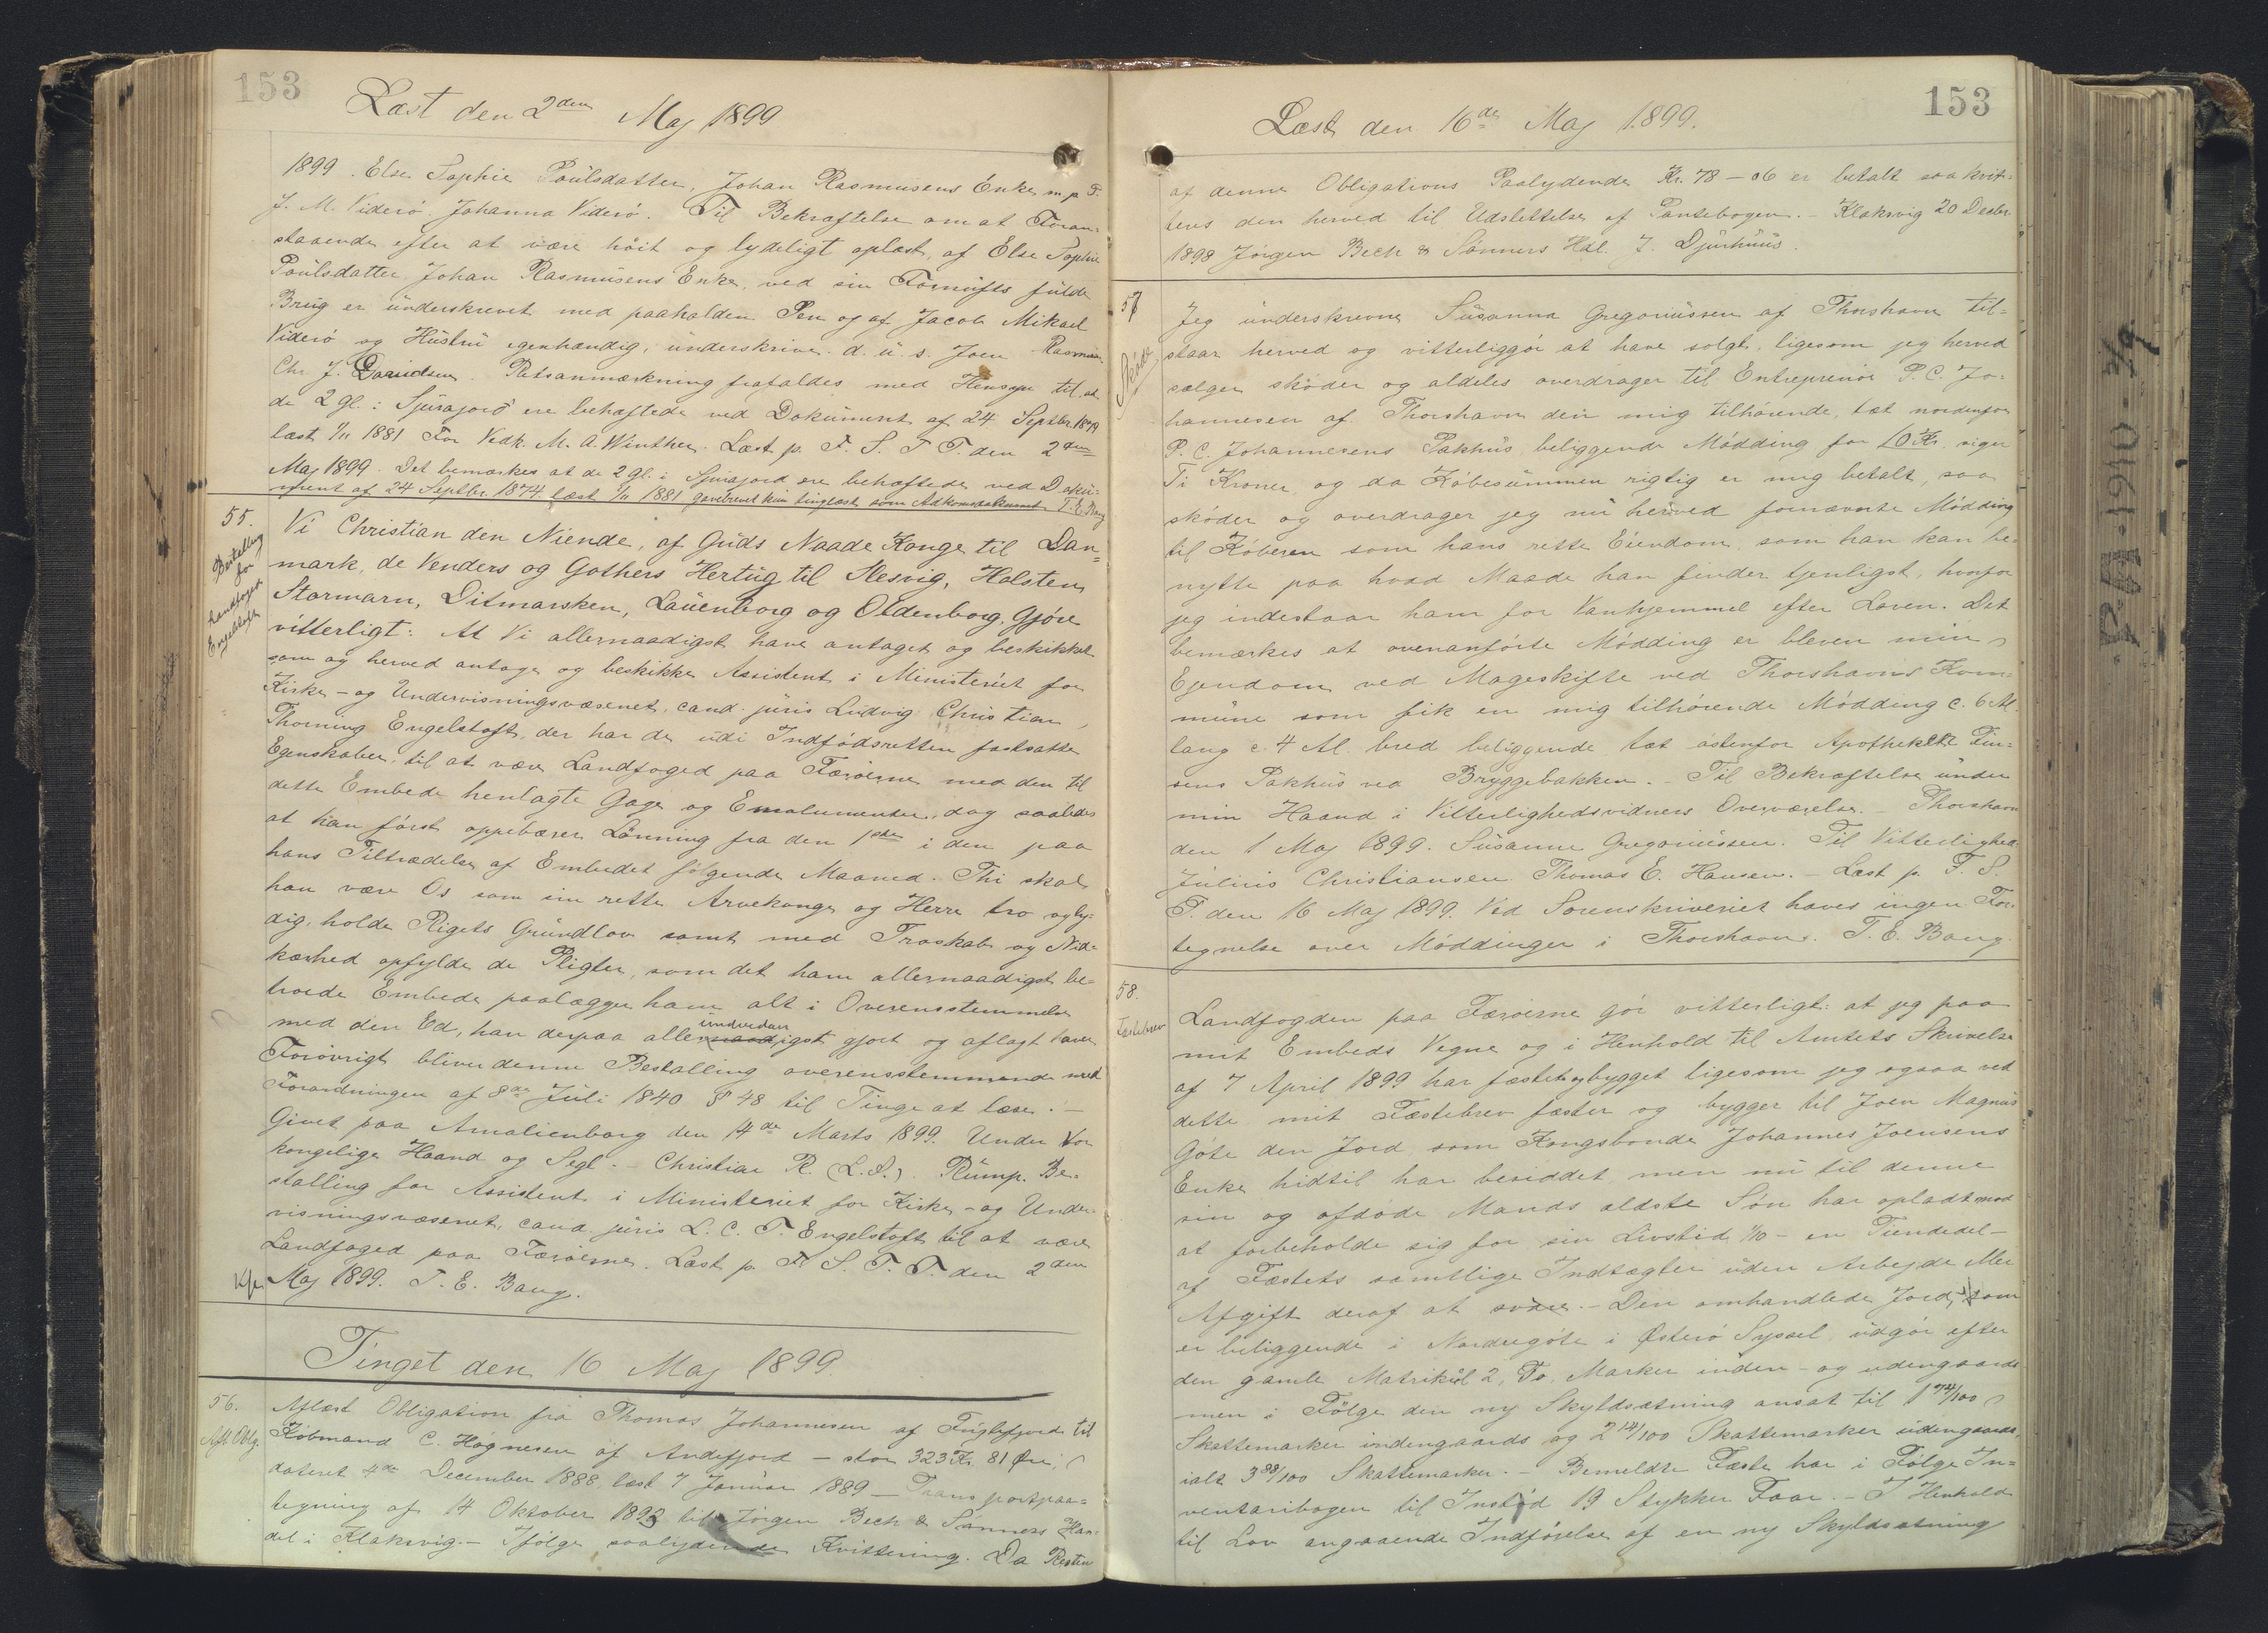 153
Læst den 2den Maj 1899
1899. Else Sophie Poulsdatter, Johan Rasmusens Enke m. p. F.
J. M. Viderö. Johanna Viderö. Til Bekræftelse om at Foran-
staaende efter at være höit og lydeligt oplæst, af Else Sophie
Poulsdatter Johan Rasmusens Enke, ved sin Fornufts fulde
Brug er underskrevet med paaholden Pen og af Jacob Mikael
Viderö og Hustru egenhændig, underskrive. d. u. s. Joen Rasmus.
Chr. J. Davidsen. Retsanmærkning frafaldes med Hensyn til at
de 2 gl. i Spurajord ere behæftede ved Dokument af 24 Septbr. 1874
læst 1/11 1881 For Vedk. M. A. Winther. Læst p. F. S. T. T. den 2den
Maj 1899. Det bemærkes at de 2 gl. i Spurajord ere behæftede ved Doku-
ment af 24 Septbr. 1874 læst 1/11 1881 gavebrevet kun tinglæst som Adkomstdokument T. E. Bang
55.
Bestalling
for
Landfoged
Engelstoft
Vi Christian den Niende, af Guds Naade Konge til Dan-
mark, de Venders og Gothers Hertug til Slesvig, Holsten,
Stormarn, Ditmarsken, Lauenborg og Oldenborg, Gjöre
vitterligt: At Vi allernaadigst have antaget og beskikket
som og herved antage og beskikke Assistent i Ministeriet for
Kirke- og Undervisningsvæsenet, cand. juris Ludvig Christian
Thorning Engelstoft, der har de udi Indfödsretten fastsatte
Egenskaber, til at være Landfoged paa Færöerne med den til
dette Embede henlagte Gage og Emolumenter, dog saaledes
at han först oppebærer Lönning fra den 1ste i den paa
hans Tiltrædelse af Embedet fölgende Maaned. Thi skal
han være Os som sin rette Arvekonge og Herre tro og ly-
dig, holde Rigets Grundlov samt med Troskab og Nid-
kærhed opfylde de Pligter, som det ham allernaadigst be-
troede Embede paalægger ham alt i Overensstemmelse
med den Ed, han derpaa allerunderdanigst gjort og aflagt haver
Forövrigt bliver denne Bestalling overensstemmende med
Forordningen af 8de Juli 1840 § 48 til Tinge at læse. -
Givet paa Amalienborg den 14de Marts 1899. Under Vor
kongelige Haand og Segl. - Christian R. (L.S.). Rump. Be-
stalling for Assistent i Ministeriet for Kirke- og Under-
visningsvæsenet, cand. juris L. C. T. Engelstoft til at være
Landfoged paa Færöerne. Læst p. F. S. T. T. den 2den
Maj 1899. T. E. Bang.
Tinget den 16 Maj 1899.
56.
Afl. Oblg.
Aflæst Obligation fra Thomas Johannesen af Fuglefjord til
Köbmand C. Høgnesen af Andefjord - stor 323 Kr. 81 Øre,
dateret 4de December 1888, læst 7 Januar 1889 - Transportpaa-
tegning af 14 Oktober 1893 til Jörgen Bech & Sönners Han-
del i Klaksvig. - Ifölge saalydende Kvittering. Da Resten
153
Læst den 16de Maj 1899.
af denne Obligations Paalydende Kr. 78 - 06 er betalt saa kvit-
teres den herved til Udslettelse af Pantebogen. - Klaksvig 20 Decbr.
1898 Jörgen Bech & Sönners Hdl. J. Djurhuus.
57
Skøde
Jeg underskrevne Susanna Gregoriussen af Thorshavn til-
staar herved og vitterliggör at have solgt, ligesom jeg herved
sælger sköder og aldeles overdrager til Entreprenör P. C. Jo-
hannesen af Thorshavn den mig tilhörende, tæt nordenfor
P. C. Johannesens Pakhus beliggende Mödding for 10 Kr. siger
Ti Kroner, og da Köbesummen rigtig er mig betalt, saa
sköder og overdrager jeg nu herved fornævnte Mödding
til Köberen som hans rette Eiendom, som han kan be-
nytte paa hvad Maade han finder tjenligst, hvorfor
jeg indestaar ham for Vanhjemmel efter Loven. Det
bemærkes at ovenanförte Mödding er bleven min
Ejendom ved Mageskifte ved Thorshavns Kom-
mune som fik en mig tilhörende Mödding c. 6 Al.
lang c. 4 Al. bred beliggende tæt östenfor Apotheker Fin-
sens Pakhus ved Bryggebakken. - Til Bekræftelse under
min Haand i Vitterlighedsvidners Overværelse. - Thorshavn
den 1 Maj 1899. Susanne Gregoriussen. Til Vitterlighed.
Julius Christiansen. Thomas E. Hansen. - Læst p. F. S.
T. den 16 Maj 1899. Ved Sorenskriveriet haves ingen For-
tegnelse over Möddinger i Thorshavn. T. E. Bang.
58.
Fæstebrev
Landfogden paa Færöerne gör vitterligt: at jeg paa
mit Embeds Vegne og i Henhold til Amtets Skrivelse
af 7 April 1899 har fæstet og bygget ligesom jeg ogsaa ved
dette mit Fæstebrev fæster og bygger til Joen Magnus
Göte den Jord som Kongsbonde Johannes Joensens
Enke hidtil har besiddet men nu til denne
sin og afdöde Mands ældste Sön har opladt mod
at forbeholde sig for sin Livstid 1/10 - en Tiendedel -
af Fæstets samtlige Indtægter uden Arbejde eller
Afgift deraf at svare. - Den omhandlede Jord, som
er beliggende i Nordregöte i Østerö Syssel udgör efter
den gamle Matrikul 2, To, Marker inden- og udengaards
men i Fölge den ny Skyldsætning ansat til 1 74/100
Skattemarker indengaards og 2 14/100 Skattemarker udengaards,
ialt 3 88/100 Skattemarker. - Bemeldte Fæste har i Fölge In-
ventariebogen til Instöd 19 Stykker Faar. - I Henhold
til Lov angaaende Indförelse af en ny Skyldsætning